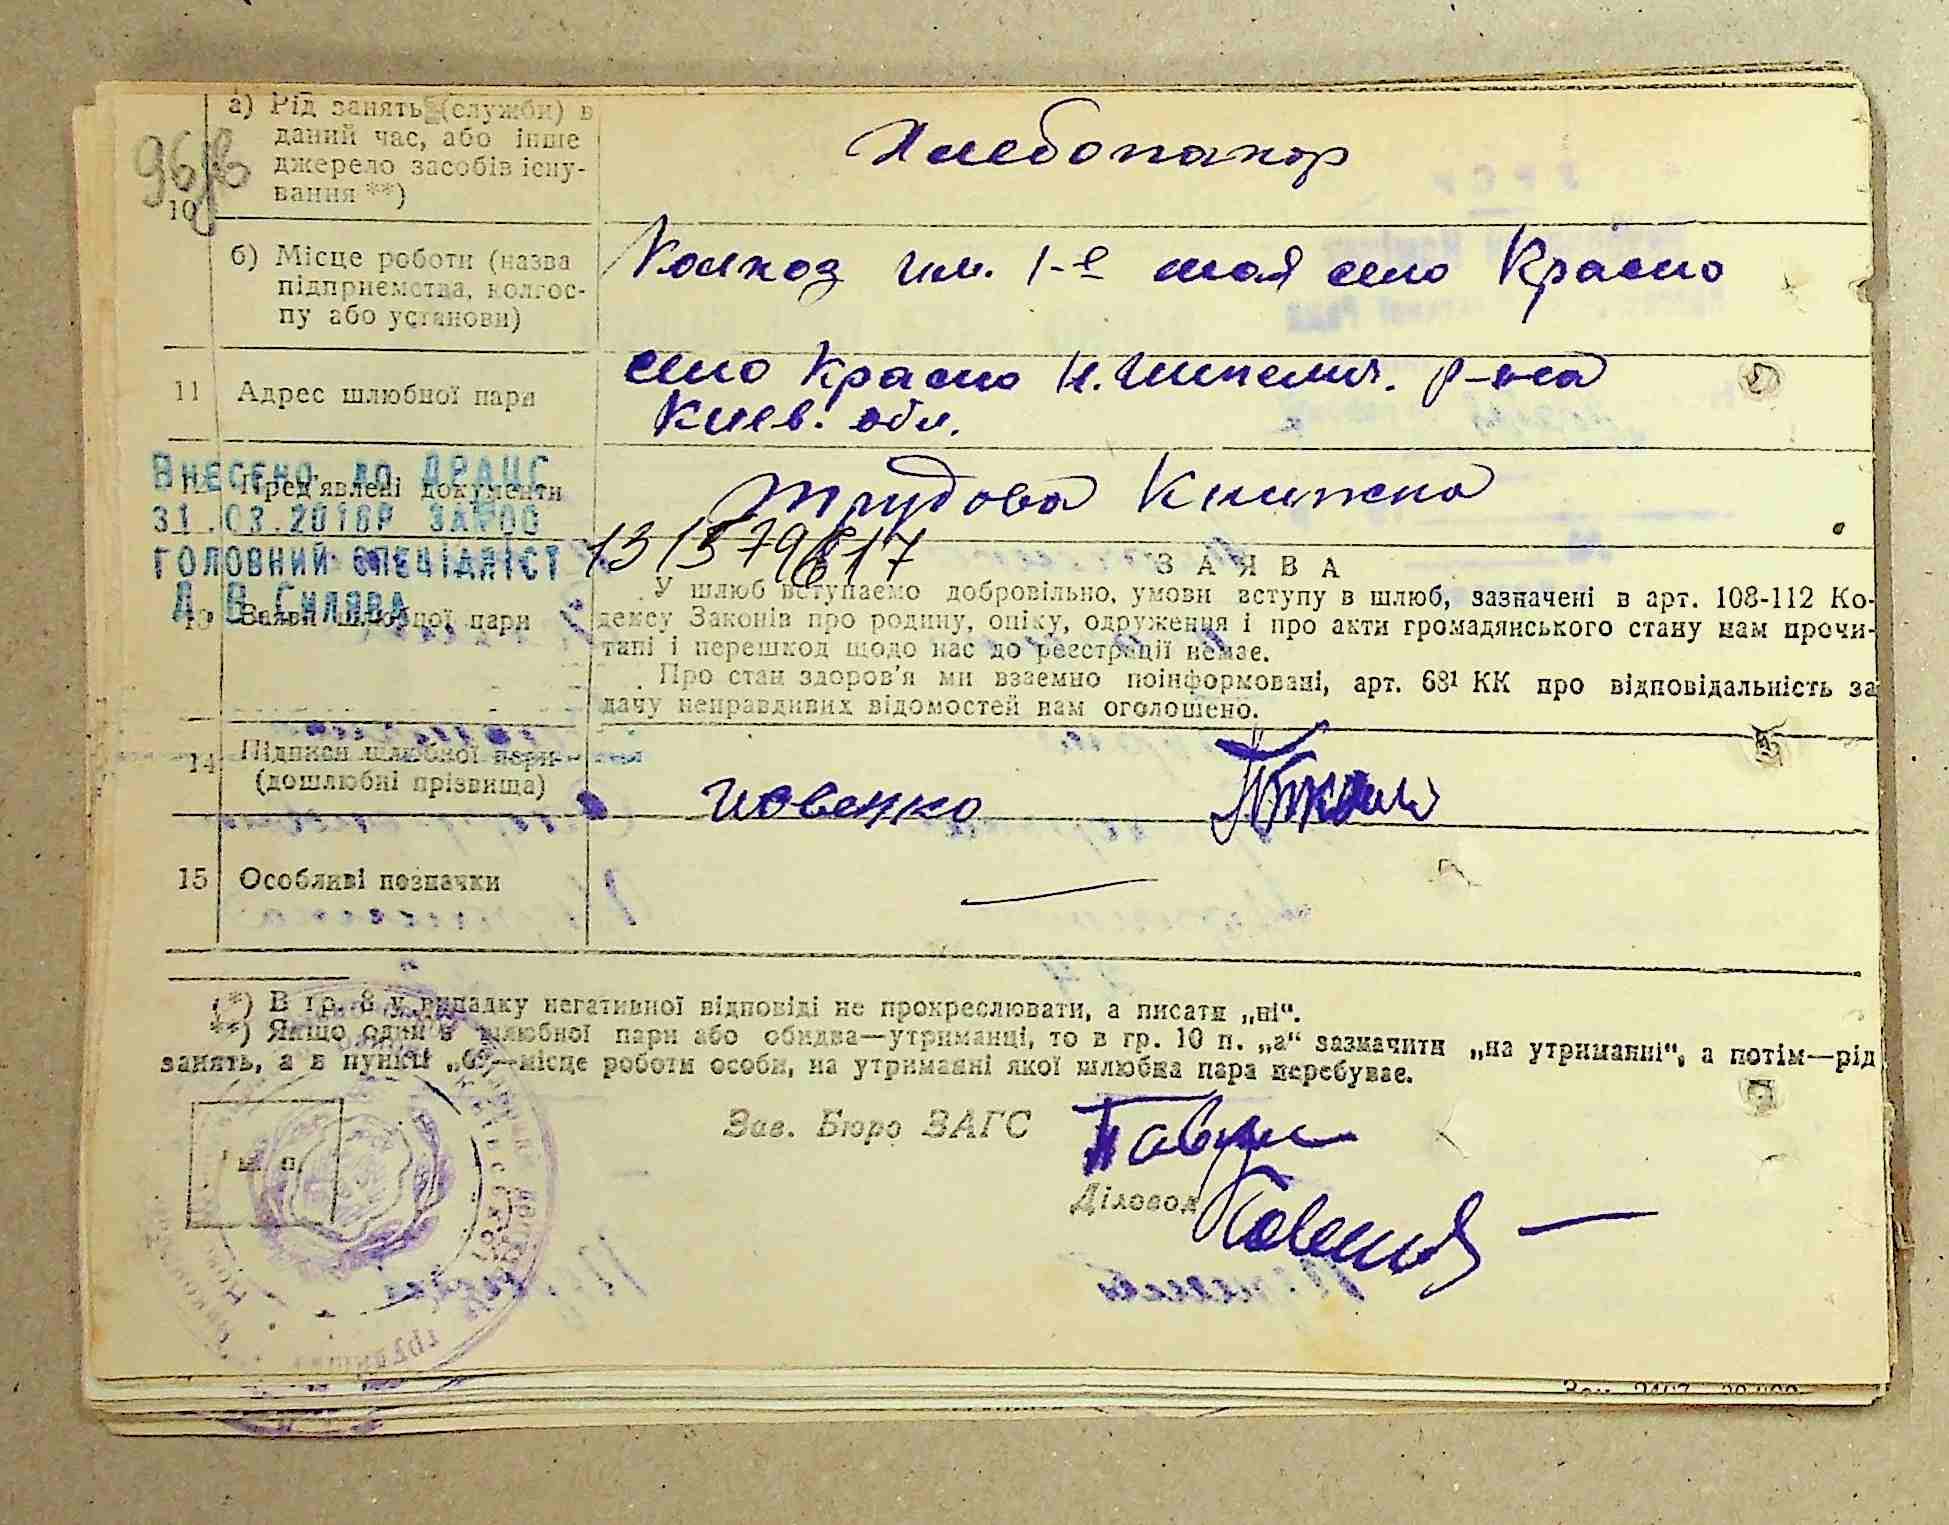 96
а) Рід занять (служби) в
даний час, або інше
джерело засобів існу-
вання **)
10
Хлебопахор
б) Місце роботи (назва
підприємства, колгос-
пу або установи)
Колхоз им. 1-е мая село Красно
11 Адрес шлюбної пари
село Красно Н. р-на
Киев. обл.
Внесено до ДРАЦС
12 Пред'явлені документи
Трудова Книжка
31.03.2016р
131579617
головний спеціаліст
Д.В. Силява
13 Заяви шлюбної пари
ЗАЯВА
У шлюб вступаємо добровільно, умови вступу в шлюб, зазначені в арт. 108-112 Ко-
дексу Законів про родину, опіку, одруження і про акти громадянського стану нам прочи-
тані і перешкод щодо нас до реєстрації немає.
Про стан здоров'я ми взаємно поінформовані, арт. 68¹ КК про відповідальність за
дачу неправдивих відомостей нам оголошено.
14 Підписи шлюбної пари
(дошлюбні прізвища)
15 Особливі позначки
—
*) В гр. 8 у випадку негативної відповіді не прокреслювати, а писати „ні“.
**) Якщо один з шлюбної пари або обидва—утриманці, то в гр. 10 п. „а“ зазначити „на утриманні“, а потім—рід
занять, а в пункті „б“—місце роботи особи, на утриманні якої шлюбна пара перебуває.
Зав. Бюро ЗАГС
Діловод